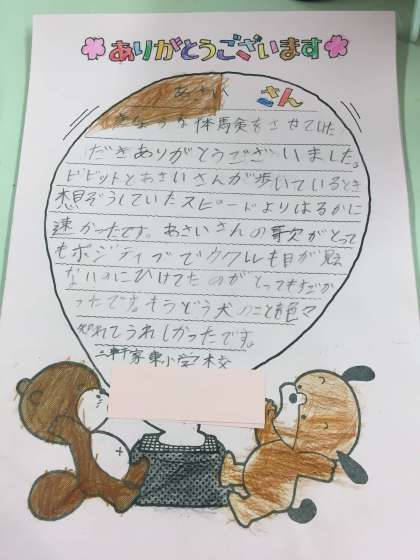 ありがとうございます
あさい さん
きちょうな体馬矣をさせていた
だきありがとうございました。
ビビットとあさいさんが歩いているとき
想ぞうしていたスピードよりはるかに
速かったです。あさいさんの歌がとって
もポジティブでウクレレも目が見え
ないのにひけてたのがとってもすごか
ったです。もうどう犬のことも色々
知れてうれしかったです。
三軒家東小学校